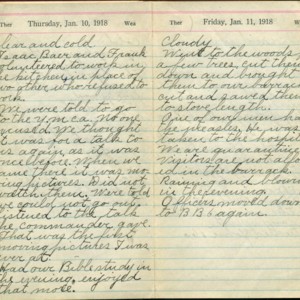 Ther. Thursday, Jan. 10, 1918 Wea.
clear and cold
Isaac Baer and Frank
volunteered to work in
the kitchen, in place of
two other, who refused to
work.
We were told to go
to the Y.M.C.A. No one
refused. We thought
it was for a talk
again as it was
once before. When we
came there it was mo-
ving pictures. Did not
watch them. Were told
we could not go out.
listened to the talk
the commander gave.
That was the first
moving pictures I was
ever at.
Had our Bible study in
the evening, enjoyed
that more.
Ther. Friday, Jan. 11, 1918 Wea.
Cloudy
Went to the woods
a few trees, cut them
down and brought
them to our
and sawed them
to stove length.
One of our men had
the measles. He was
taken to the
We are quarantined
Visitors are not allow
ed in the barracks.
Raining and blowing
in the evening.
Officers moved down
to B.B. again.